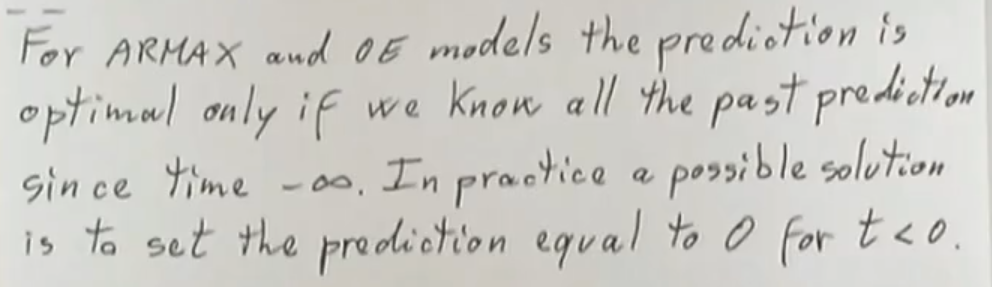 For ARMAX and OE models the prediction is
optimal only if we know all the past prediction
since time -∞. In practice a possible solution
is to set the prediction equal to 0 for t<0.